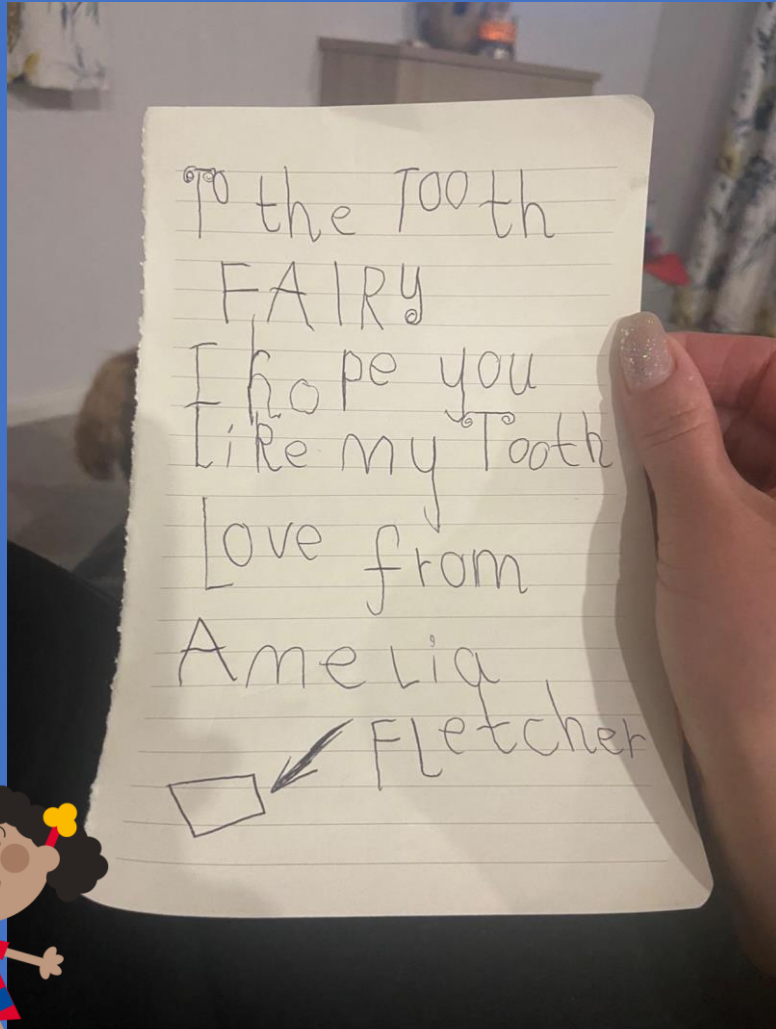 To the Tooth
FAIRY
I hope you
Like my Tooth
Love from
Amelia
Fletcher